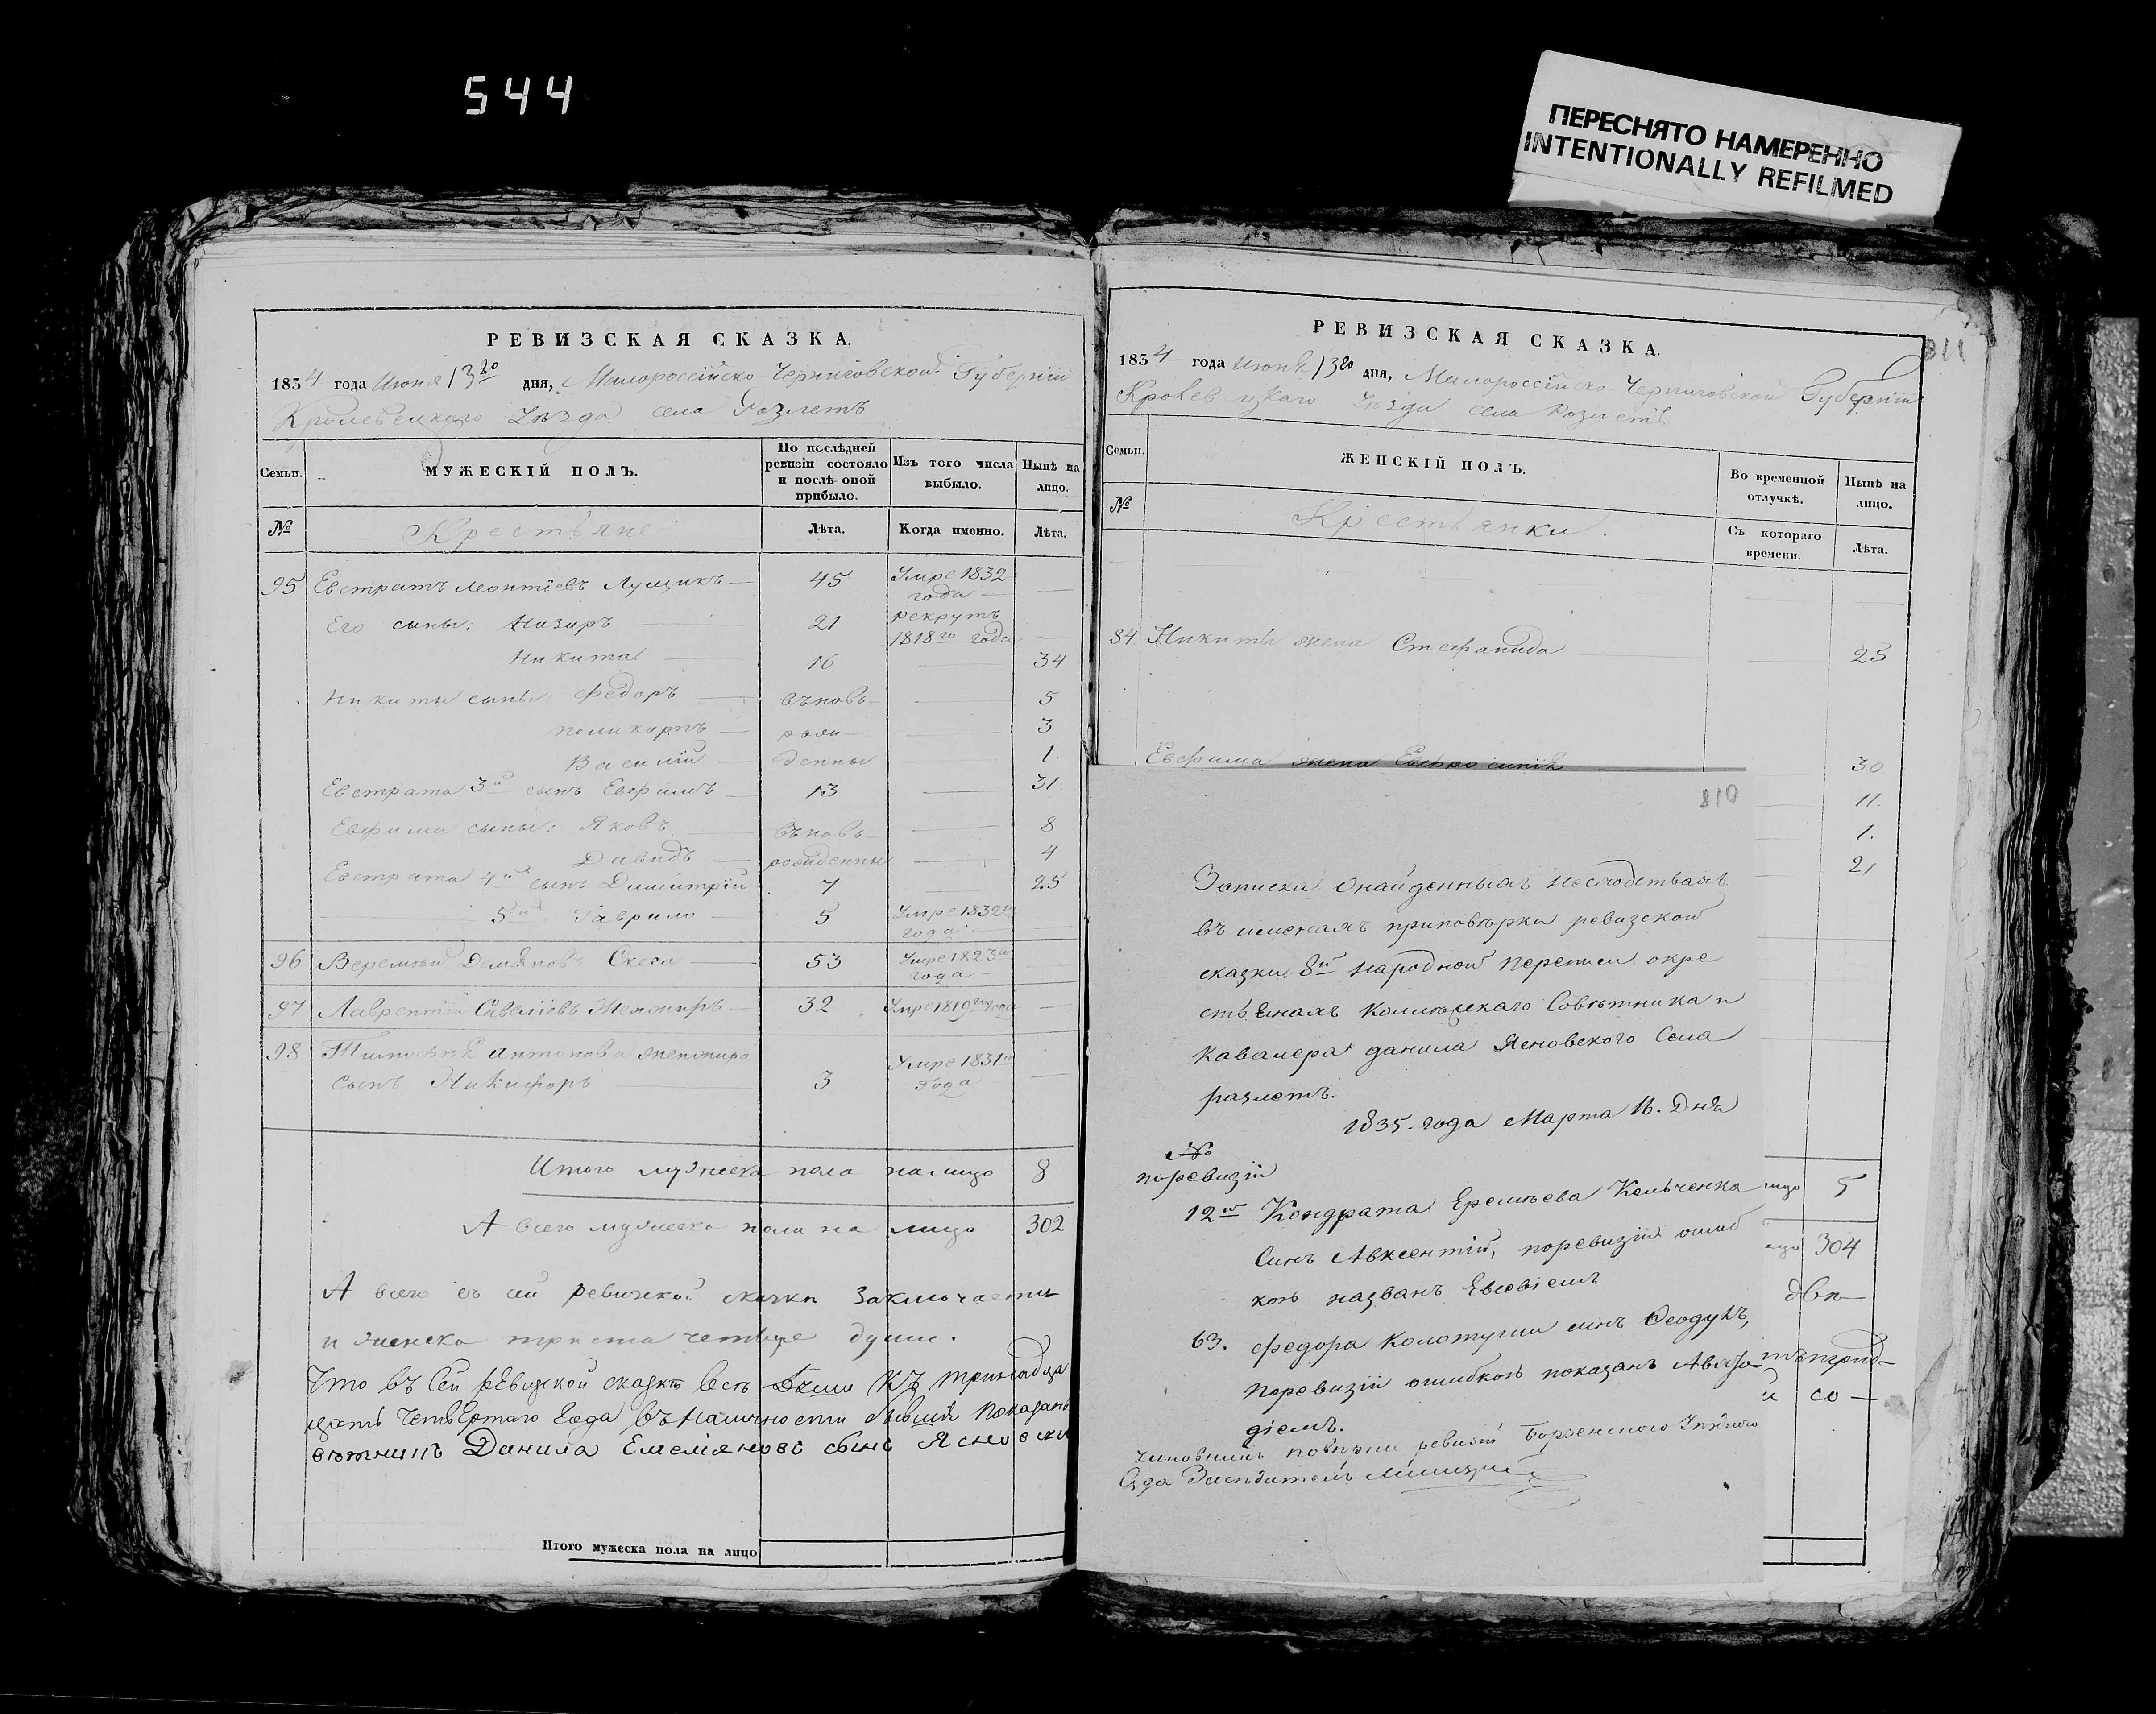 544
ПЕРЕСНЯТО НАМЕРЕННО
INTENTIONALLY REFILMED
РЕВИЗСКАЯ СКАЗКА.
1834 года Июня 13го дня, Малороссійско Черниговской Губерніи
Кролевецкаго Уѣзда села Розлетъ
Семьи. МУЖЕСКІЙ ПОЛЪ. По послѣдней ревизіи состояло и послѣ оной прибыло. Изъ того числа выбыло. Нынѣ на лицо.
№ Крестьяне Лѣта. Когда именно. Лѣта.
95 Евстратъ Леонтіевъ Лущикъ 45 Умре 1832 года
Его сыны: Назаръ 21 рекрутъ 1818го года
Никита 16 34
Никиты сыны: Федоръ вновь 5
поликарпъ рож 3
Василій денны 1.
Евстрата 3й сынъ Евфимъ 13 31.
Евфима сыны: Яковъ вновь 8
Давидъ рожденны 4
Евстрата 4й сынъ Димитрій 7 25
5й Гаврило 5 Умре 1832го года
96 Веремѣй Демяновъ 53 Умре 1823го года
97 Лаврентій Савеліевъ 32 Умре 1819го года
98 Антонова
сынъ Никифоръ 3 Умре 1831го года
Итого мужеска пола налицо 8
А всего мужеска пола на лицо 302
А всего въ сей ревизской сказки заключается
и женска триста четыре души.
Что въ Сей рЕвизской сказкѣ всѣ Къ тринадца
четвЕртаго Года въ наличности бывшія показан
вѣтникъ Данила Емельяновъ сынъ Ясновски
Итого мужеска пола на лицо
РЕВИЗСКАЯ СКАЗКА. 811
1834 года Июня 13го дня, Малороссійско-Черниговской Губерніи
Кролевецкаго Уѣзда села Розлетъ
Семьи. ЖЕНСКІЙ ПОЛЪ. Во временной отлучкѣ. Нынѣ на лицо.
№ Крестьянки. Съ котораго времени. Лѣта.
Никиты жена Стефанида 25
Евфима жена Евфросинія 30
810
11.
1.
21
Записка онайденныхъ
въ именахъ приповѣрки ревизской
сказки 8й народной переписи окре
стьянахъ Колежскаго Совѣтника и
Кавалера данила Ясновского Села
разлетъ.
1835. года Марта 16. Дня
№
поревизіи
12й Кондрата Еремѣева Кельченка лицо 5
Синъ Авксентій, поревизіи ошиб 304
кою названъ Евсѣвіемъ
63. федора Колотуши синъ Феодулъ,
поревизіи ошибкою показанъ
діемъ.
Чиновникъ повѣрки ревизіи Борзенского
Суда Засѣдатель